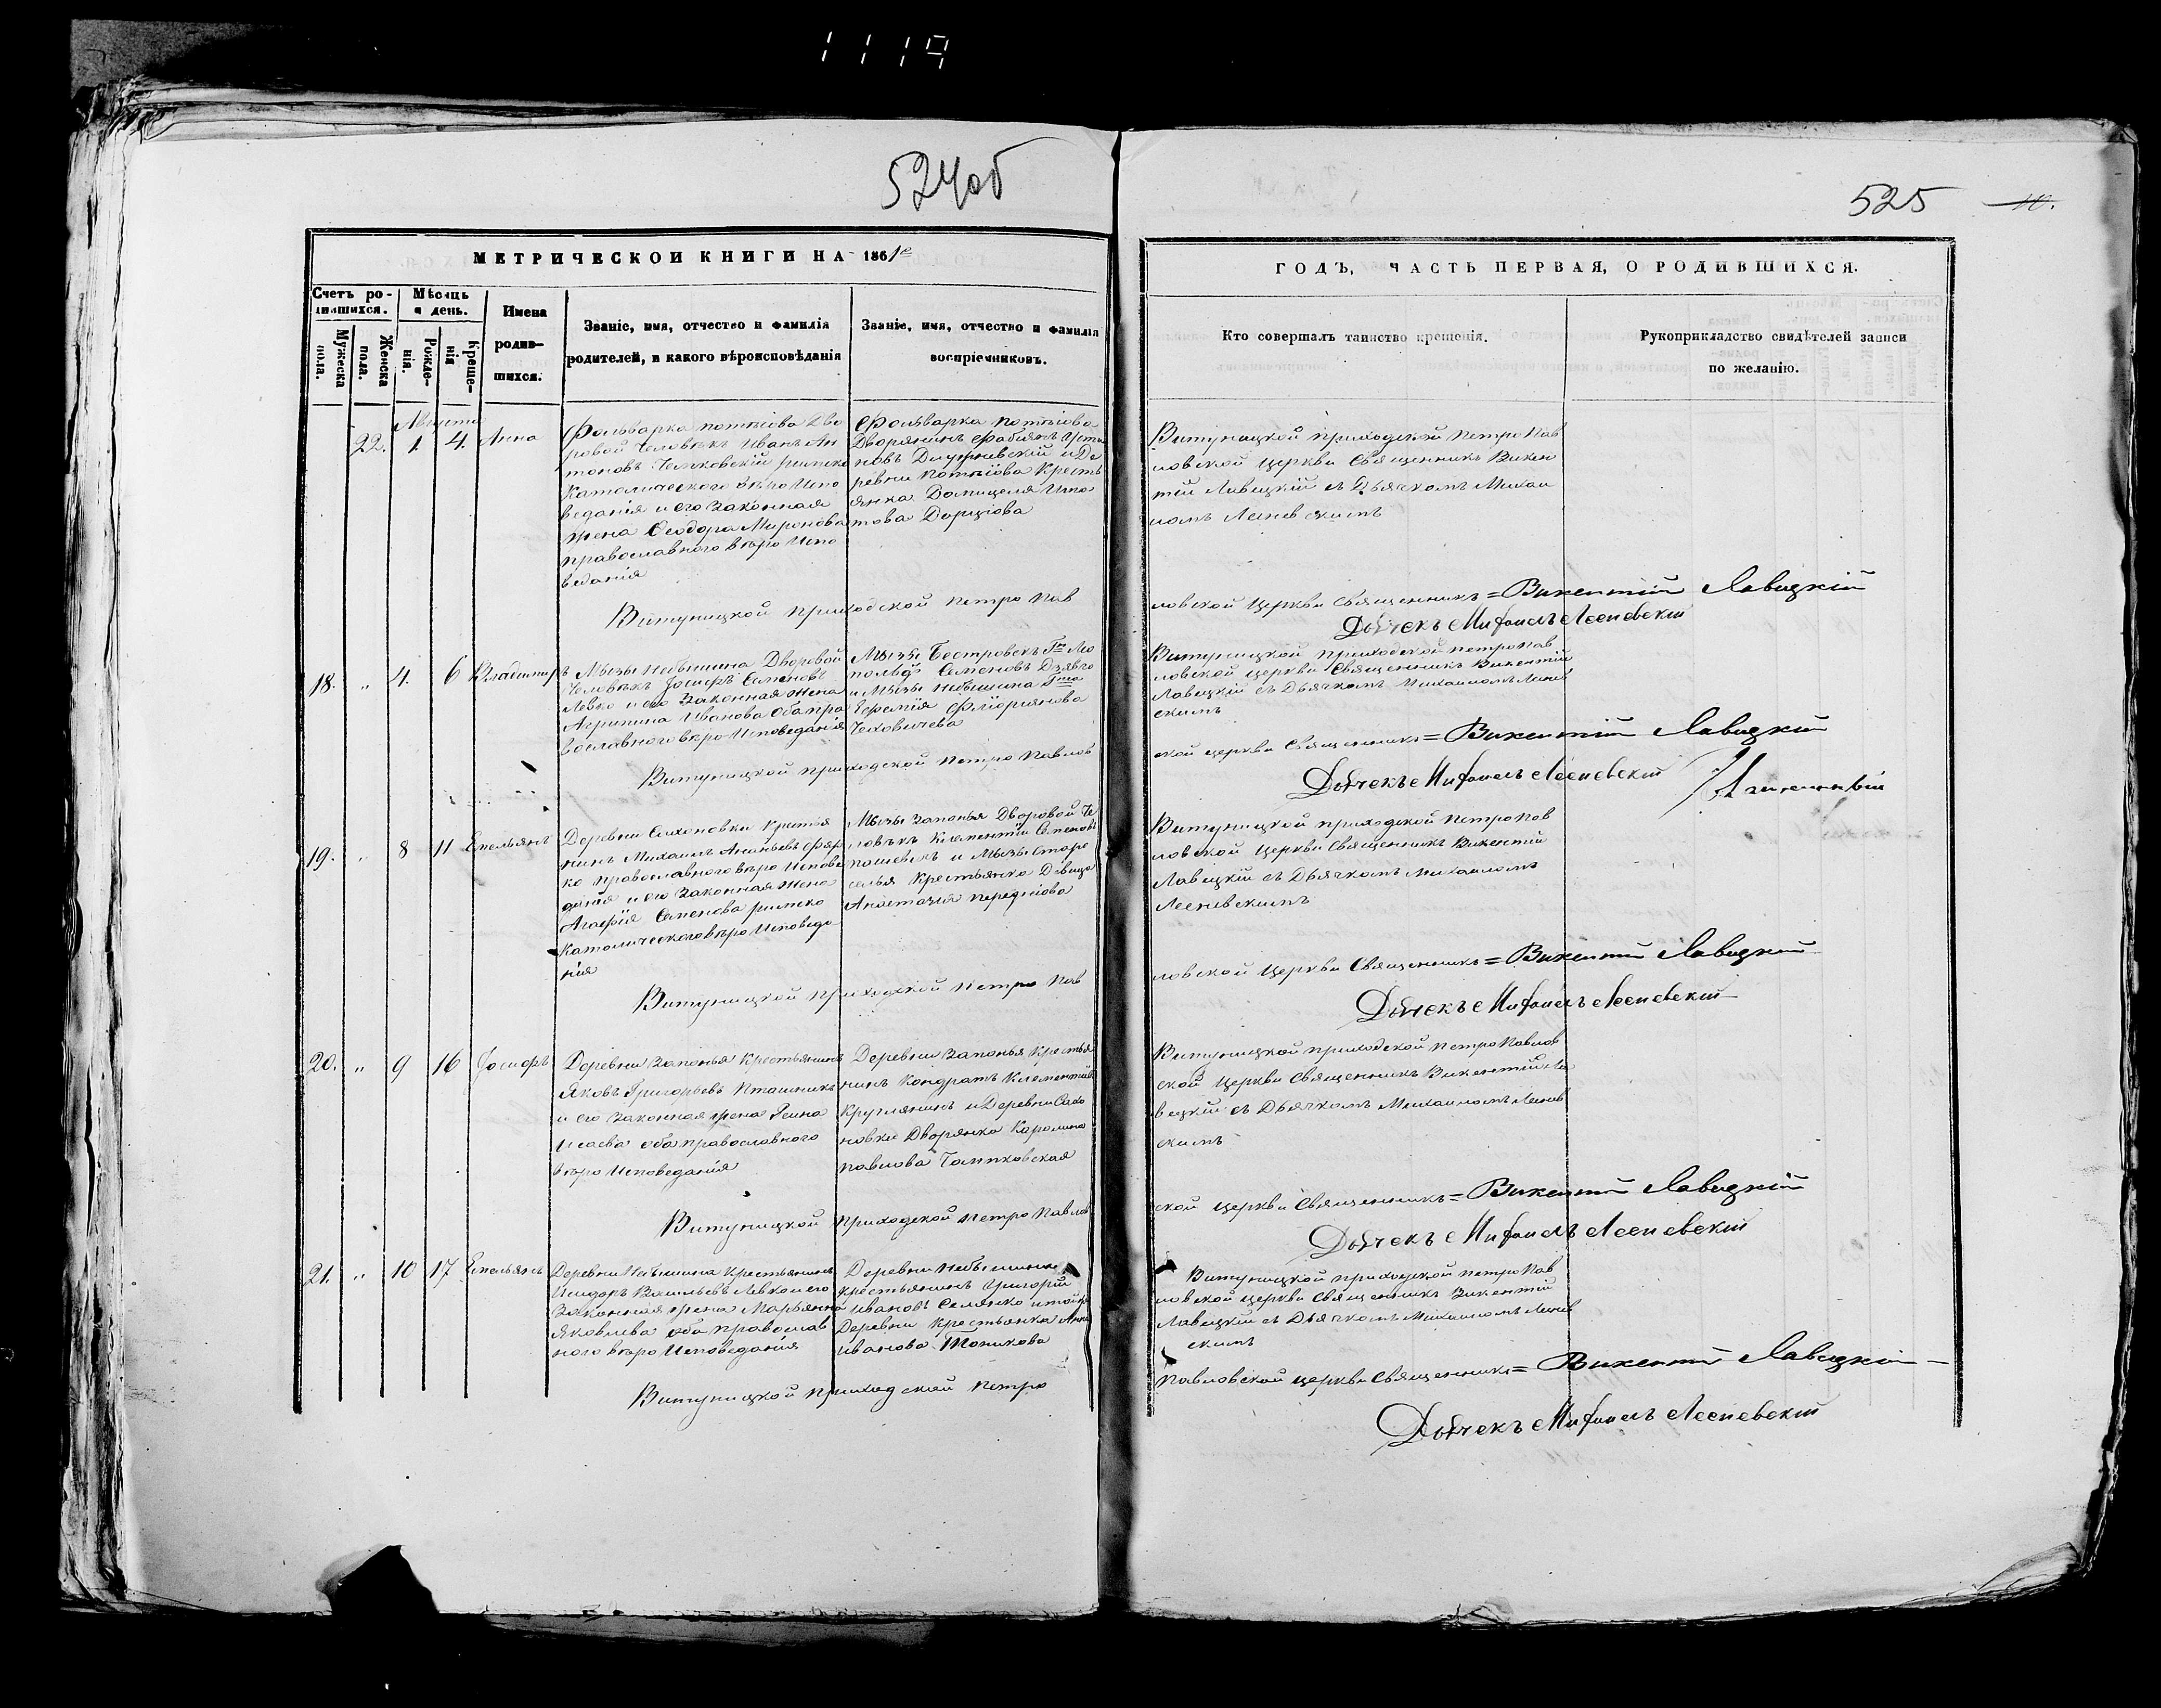 1119
524об
525
10.
МЕТРИЧЕСКОЙ КНИГИ НА 1861е
ГОДЪ, ЧАСТЬ ПЕРВАЯ, О РОДИВШИХСЯ.
Счетъ родившихся.
Мужеска пола.
Женска пола.
Мѣсяцъ и день.
Рожденія.
Крещенія
Имена родившихся.
Званіе, имя, отчество и фамилія
родителей, и какого вѣроисповѣданія
Званіе, имя, отчество и фамилія
воспріемниковъ.
Кто совершалъ таинство крещенія.
Рукоприкладство свидѣтелей записи
по желанію.
Августа
22. 1. 4. Анна
Фольварка Дво
ровой Человѣкъ Иванъ Ан
тоновъ римско
Католическаго вѣро Испо
веданія и его Законная
жена Ѳеодора Миронова
православного вѣро Испо
веданія
Фольварка
Дворянинъ Фабіянъ
новъ и Де
ревни Кресть
янка Домицеля
това
Витуницкой приходской Петро Пав
ловской Церкви Священникъ Викен
тій Лавицкій съ Дьячкомъ Михаи
ломъ Лесневскимъ
Витуницкой приходской Петро Пав
ловской Церкви Священникъ = Викентій Лавицкій
Дьячекъ Михаилъ Лесневскій
18. " 4. 6 Владимиръ
Мызы Небышина Дворовой
Человѣкъ Іосифъ Семеновъ
Левко и его Законная жена
Агрипина Иванова оба пра
вославного вѣро Исповеданія
Мызы
Семеновъ
и Мызы Небышина
Флоріянова
Витуницкой приходской Петро Пав
ловской церкви Священникъ Викентій
Лавицкій съ Дьячкомъ Михаиломъ Леснев
скимъ
Витуницкой приходской Петро Павлов
ской церкви Священникъ = Викентій Лавицкій
Дьячекъ Михаилъ Лесневскій
19. " 8 11 Емельянъ
Деревни Крестья
нинъ Михаилъ Ананьевъ
ко православного вѣро Испове
данія и его Законная жена
Агафія Семенова римско
Католического вѣро Исповеда
нія
Мызы Запонья Дворовой Че
ловѣкъ Климентій Семеновъ
и Мызы Старо
селья Крестьянка Девица
Анастазія
Витуницкой приходской Петро Пав
ловской Церкви Священникъ Викентій
Лавицкій съ Дьячкомъ Михаиломъ
Лесневскимъ
Витуницкой приходской Петро Пав
ловской Церкви Священникъ = Викентій Лавицкій
Дьячекъ Михаилъ Лесневскій
20. " 9 16 Іосифъ
Деревни Запонья Крестьянинъ
Яковъ Григорьевъ Пташникъ
и его Законная жена
Исаева оба православного
вѣро Исповеданія
Деревни Запонья Крестья
нинъ Кондратъ Климентіевъ
Круглянинъ и Деревни Сахо
новки Дворянка Каролина
Павлова
Витуницкой приходской Петро Павлов
ской Церкви Священникъ Викентій Ла
вицкій съ Дьячкомъ Михаиломъ Леснев
скимъ
Витуницкой приходской Петро Павлов
ской церкви Священникъ = Викентій Лавицкій
Дьячекъ Михаилъ Лесневскій
21. " 10 17 Емельянъ
Деревни Небышина Крестьянинъ
Исидоръ Васильевъ Левко и его
Законная жена Марьянна
Яковлева оба православ
ного вѣро Исповеданія
Деревни Небышина
Крестьянинъ Григорій
Ивановъ Семянко и той же
Деревни Крестьянка Анна
Иванова
Витуницкой приходской Петро Пав
ловской церкви Священникъ Викентій
Лавицкій съ Дьячкомъ Михаиломъ Леснев
скимъ
Витуницкой приходской Петро
Павловской церкви Священникъ = Викентій Лавицкій
Дьячекъ Михаилъ Лесневскій